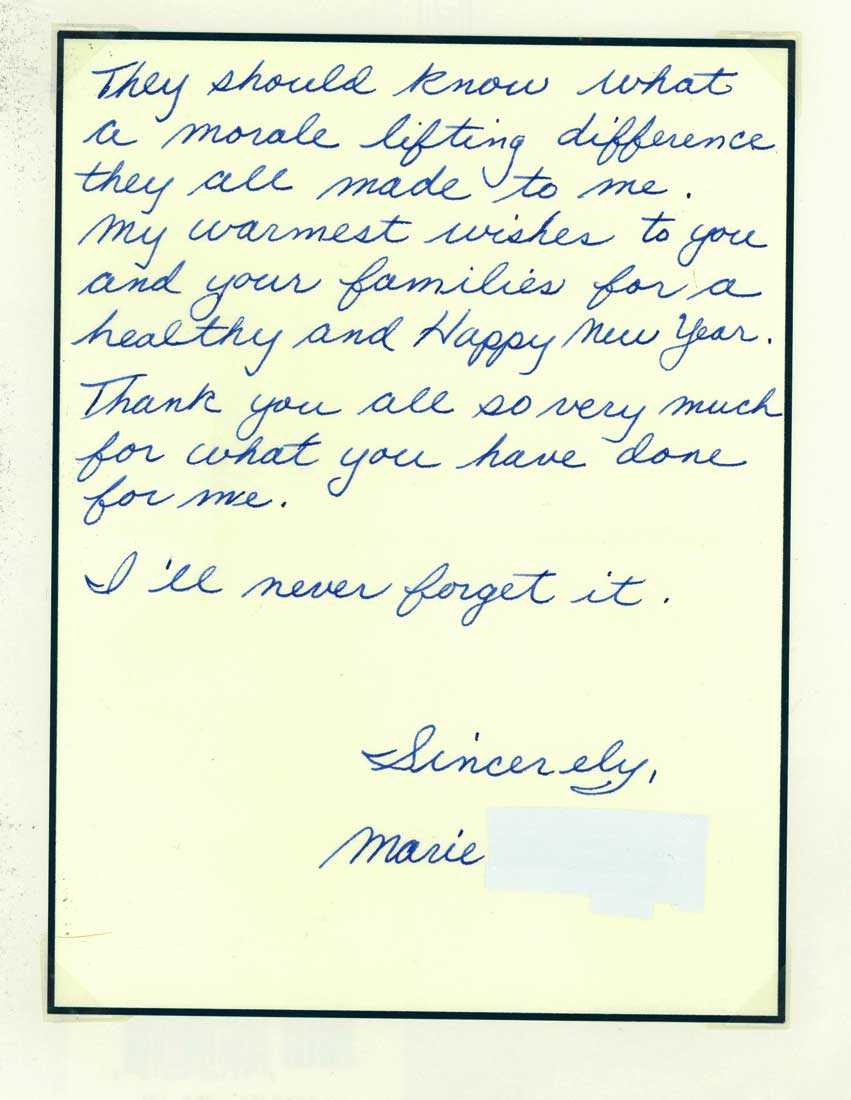 They should know what
a morale lifting difference
they all made to me.
My warmest wishes to you
and your families for a
healthy and Happy New Year.
Thank you all so very much
for what you have done
for me.
I'll never forget it.
Sincerely,
Marie